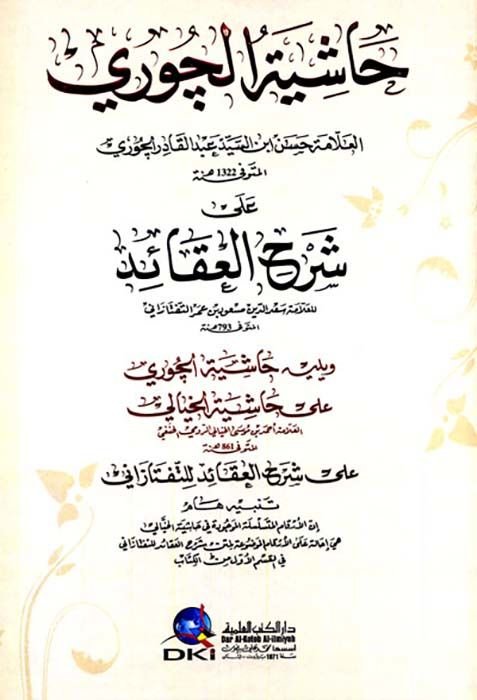 حاشية الچوري
العلامة حسن ابن السيد عبد القادر الچوري
المتوفى 1322 هـنة
على
شرح العقائد
للعلامة سعد الدين مسعود بن عمر التفتازاني
المتوفى 793 هـنة
ويليه حاشية الچوري
على حاشية الخيالي
العلامة أحمد بن موسى الخيالي الرومي الحنفي
المتوفى 861 هـنة
على شرح العقائد للتفتازاني
تنبيه هام
إن الأرقام المتسلسلة الموجودة في حاشية الخيالي
هي إحالة على الأرقام الموضوعة بمتن شرح العقائد للتفتازاني
في القسم الأول من الكتاب
دار الكتب العلمية
Dar Al-Kotob Al-ilmiyah
DKi